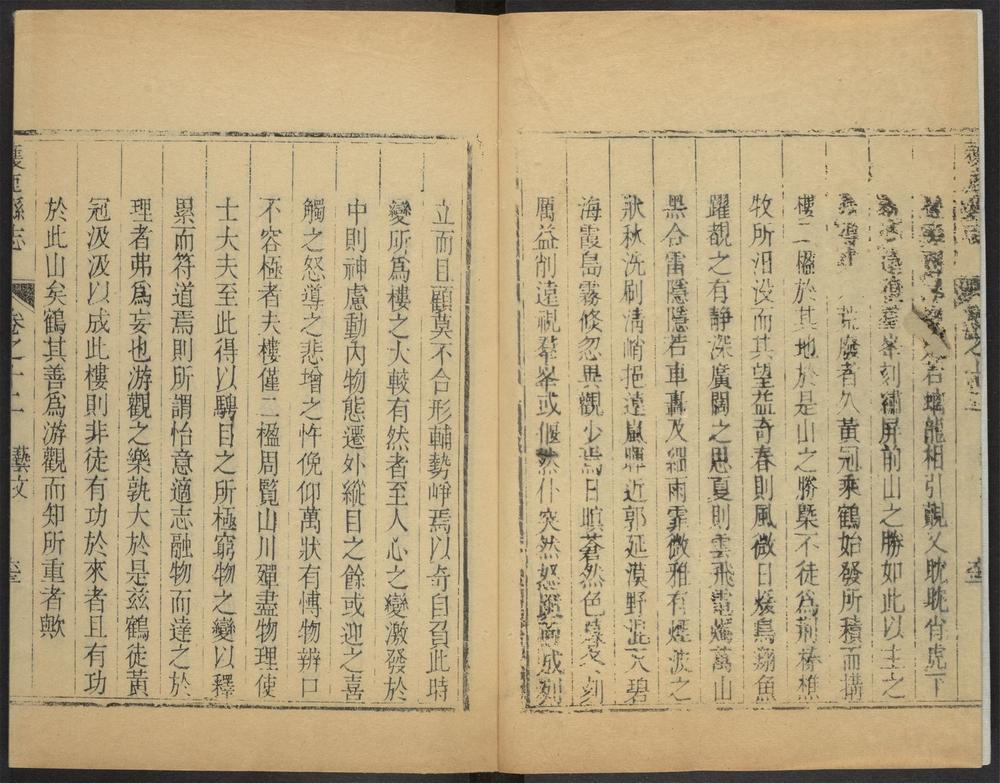 若螭龍相引觀又眈眈肖虎下
峯刻繡屏前山之勝如此以主之
荒廢者久黃冠乘鶴始發所積而搆
樓二楹於其地於是山之勝槩不徒爲荊榛樵
牧所汨没而其望益奇春則風微日煖鳥翔魚
躍覩之有静深廣闊之思夏則雲飛電爥萬山
黑合雷隱隱若車轟及細雨霏微雅有煙波之
狀秋洗刷清峭挹遠嵐輝近郭延漠野混天碧
海霞島霧倐忽異觀少焉日暝蒼然色
厲益削遠視羣峯或偃然仆突然怒
立而且顧莫不合形輔勢崢焉以奇自負此時
變所爲樓之大較有然者至人心之變激發於
中則神慮動內物態遷外縱目之餘或迎之喜
觸之怒導之悲增之忤俛仰萬狀有慱物辨口
不容極者夫樓僅二楹周覧山川殫盡物理使
士大夫至此得以騁目之所極窮物之變以釋
累而符道焉則所謂怡意適志融物而達之於
理者弗爲妄也游觀之樂孰大於是玆鶴徒黃
冠汲汲以成此樓則非徒有功於來者且有功
於此山矣鶴其善爲游觀而知所重者歟
縣志 卷之十二 藝文